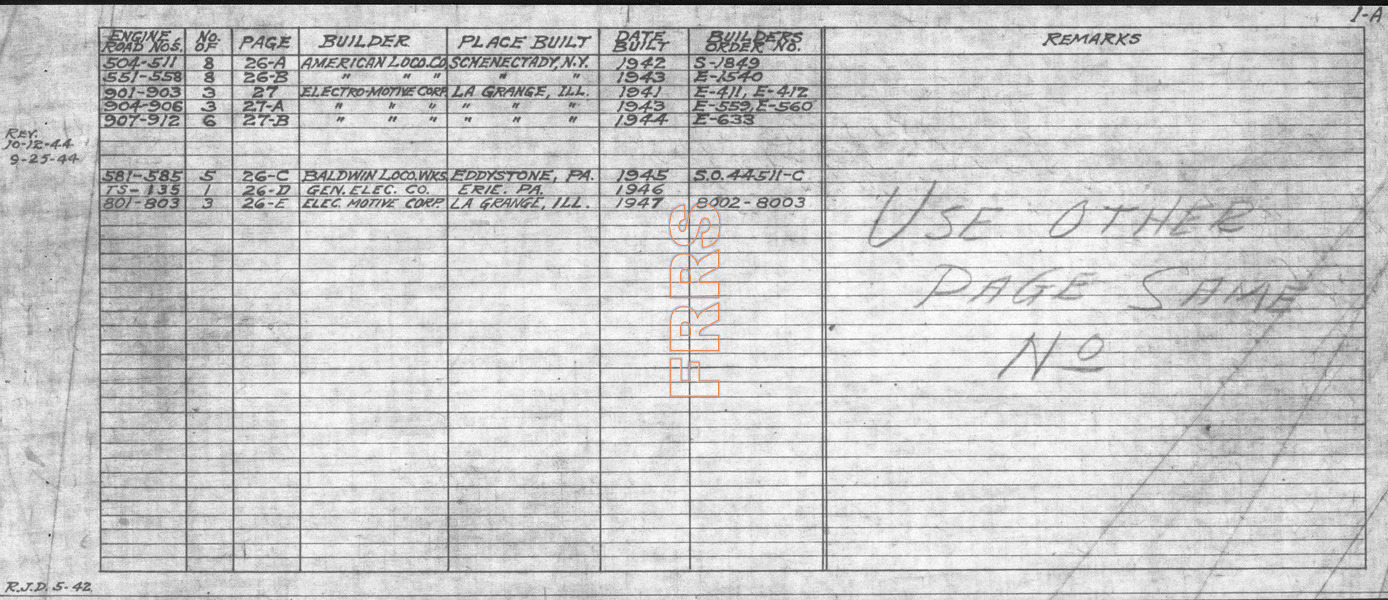 1-A
ENGINE ROAD NOS. NO. OF PAGE BUILDER PLACE BUILT DATE BUILT BUILDERS ORDER NO. REMARKS
504-511 8 26-A AMERICAN LOCO.CO. SCHENECTADY, N.Y. 1942 S-1849
551-558 8 26-B " " " " " 1943 E-1540
901-903 3 27 ELECTRO-MOTIVE CORP. LA GRANGE, ILL. 1941 E-411, E-412
904-906 3 27-A " " " " " " 1943 E-559, E-560
907-912 6 27-B " " " " " " 1944 E-633
REV.
10-12-44
9-25-44
581-585 5 26-C BALDWIN LOCO.WKS. EDDYSTONE, PA. 1945 S.O. 44511-C
TS-135 1 26-D GEN. ELEC. CO. ERIE. PA. 1946
801-803 3 26-E ELEC. MOTIVE CORP. LA GRANGE, ILL. 1947 8002-8003
USE OTHER
PAGE SAME
NO
FRRS
R.J.D. 5-42